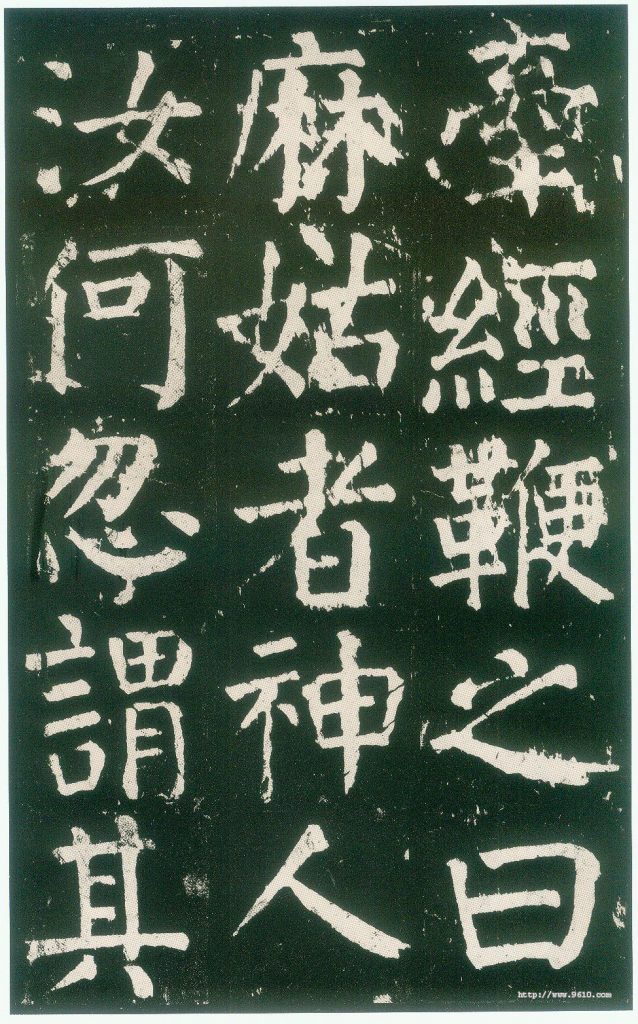 牽經鞭之曰
麻姑者神人
汝何忽謂其
http://www.9610.com